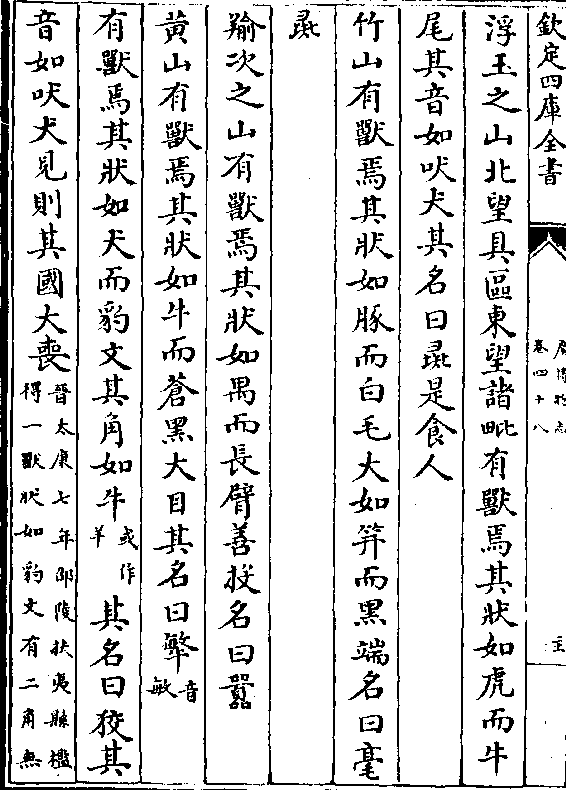 欽定四庫全書
卷四十八
浮玉之山北望具區東望諸毗有獸焉其狀如虎而牛
尾其音如吠犬其名曰彘是食人
竹山有獸焉其狀如豚而白毛大如笄而黑端名曰毫
彘
羭次之山有獸焉其狀如禺而長臂善投名曰嚻
黃山有獸焉其狀如牛而蒼黑大目其名曰𤛎音敏
有獸焉其狀如犬而豹文其角如牛或作羊其名曰狡其
音如吠犬見則其國大喪晉太康七年邵陵扶夷縣檻得一獸狀如豹文有二角無